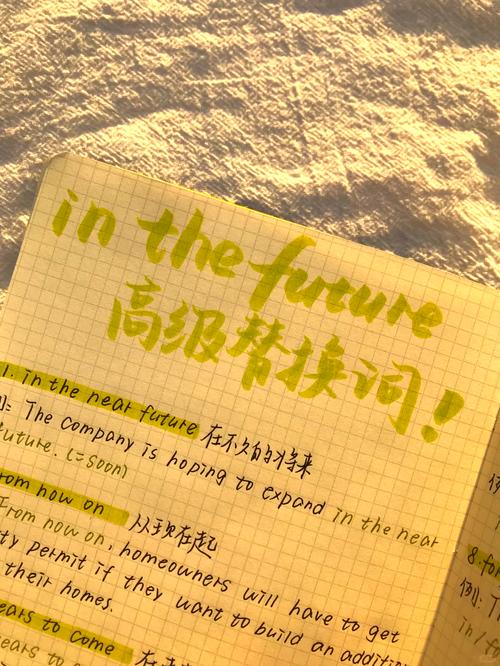 in the future
高级替换词!
1. in the near future 在不久的将来
The company is hoping to expand in the near
future. (=soon)
from now on 从现在起
From now on, homeowners will have to get
permit if they want to build an
their homes.
years to come
8. for
例: T
in / f